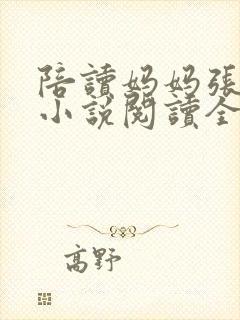 陪讀妈妈張
小說閱讀全
高野